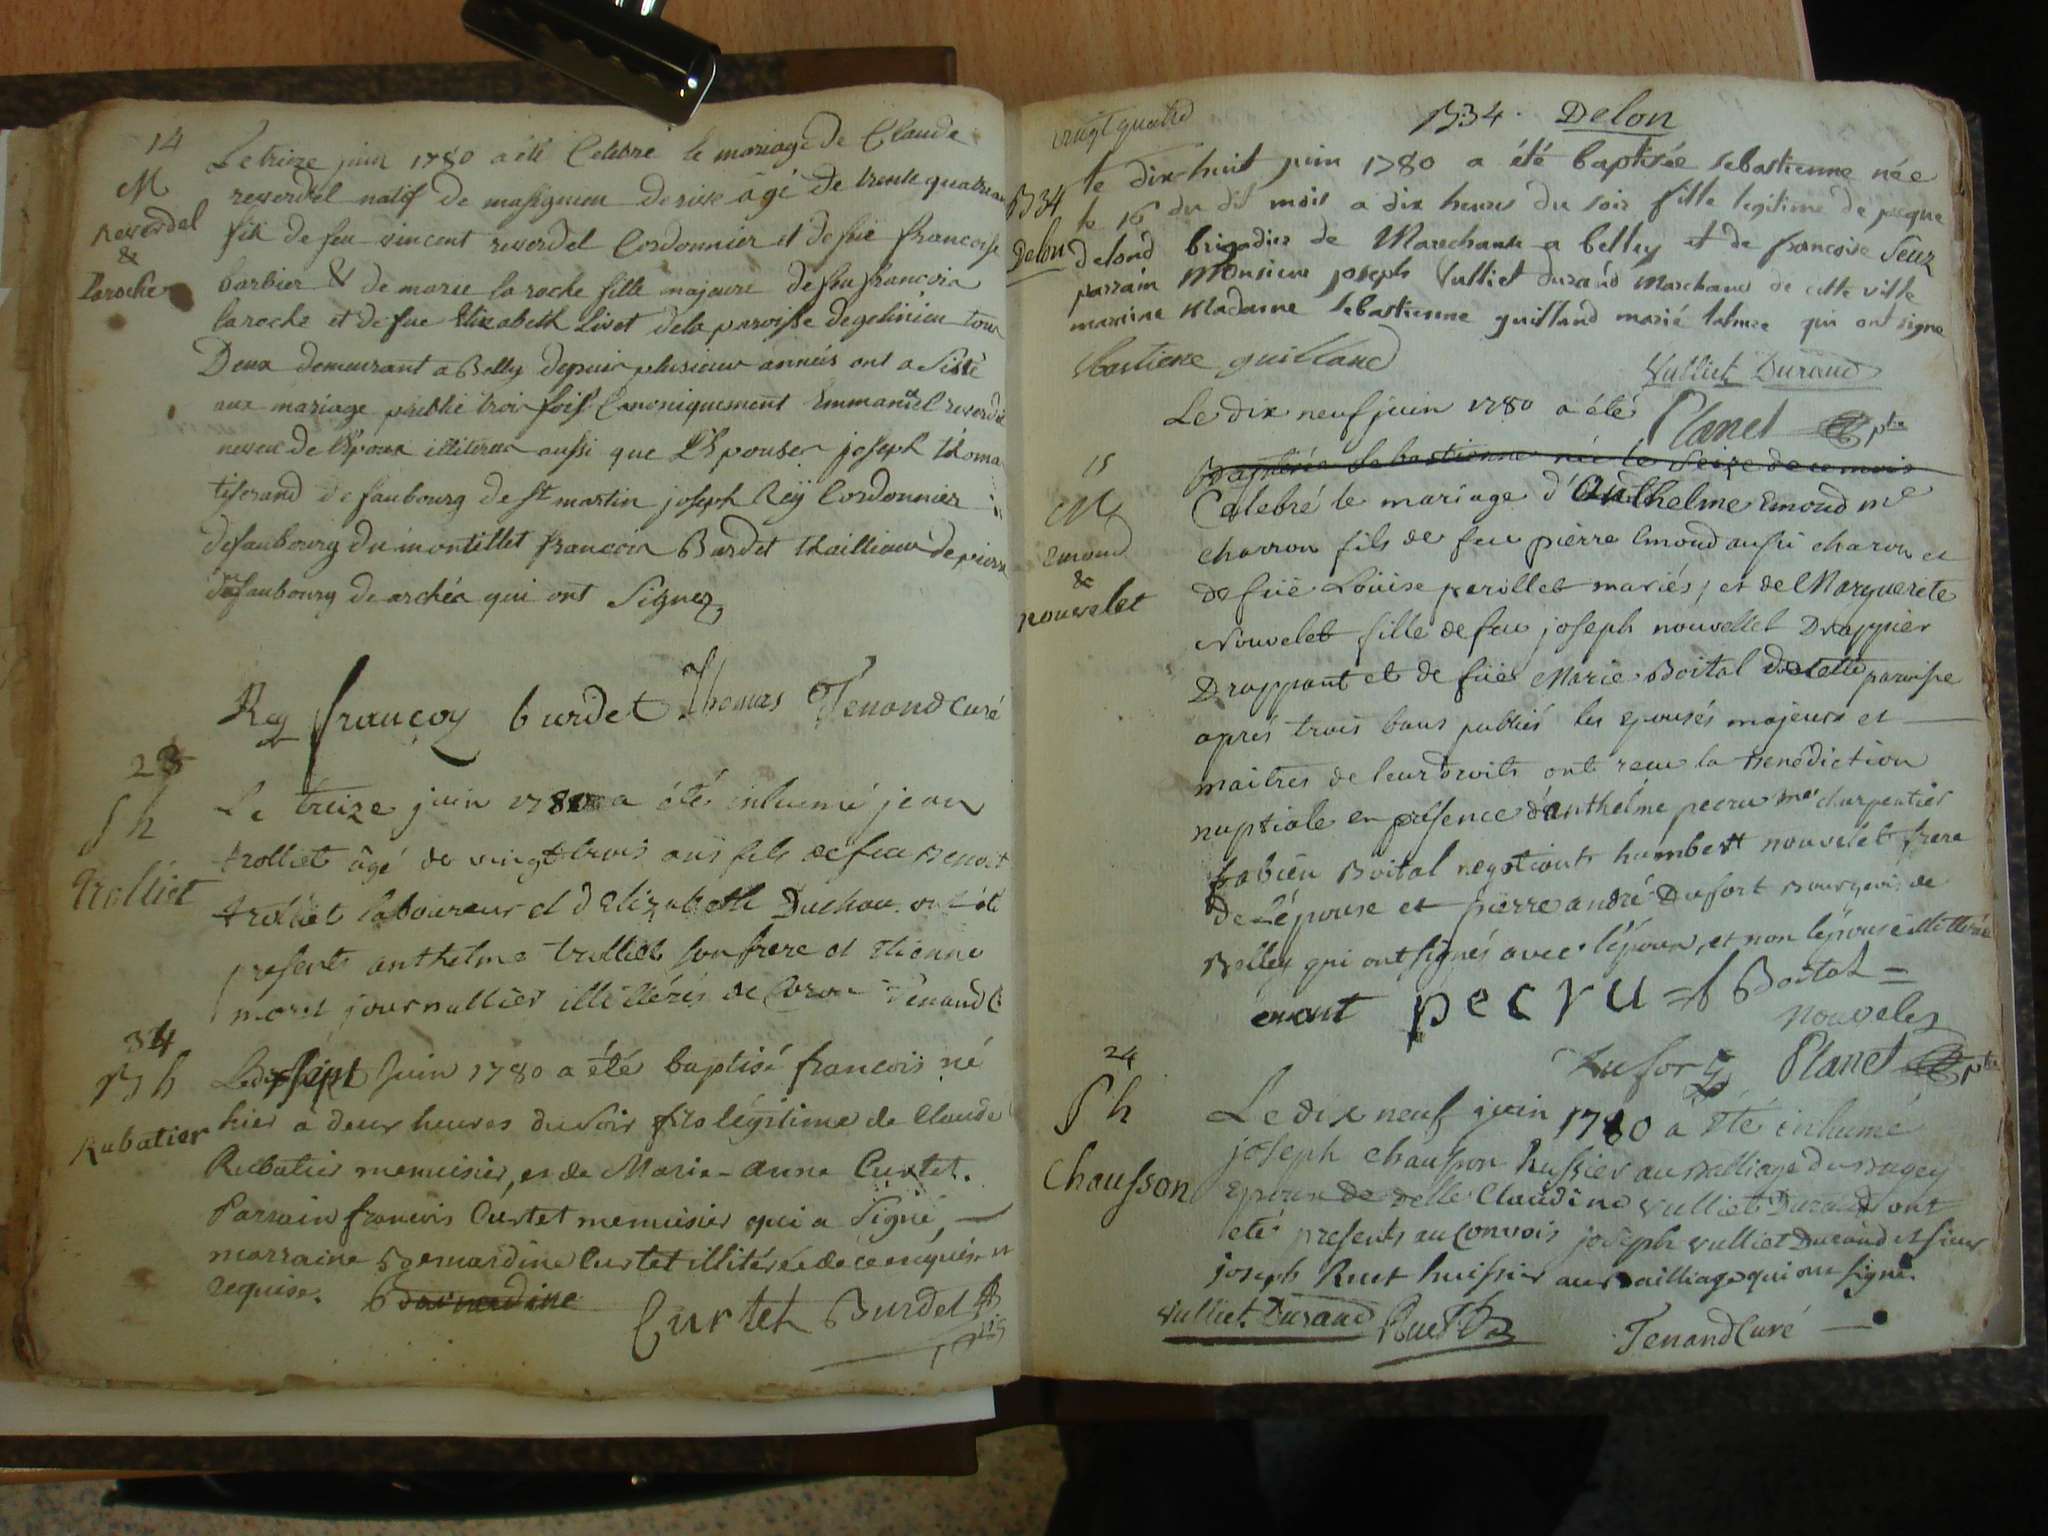 14
M
Reverdel
&
Laroche
Le treize juin 1780 a été Celebré le mariage de Claude
reverdel natif de masignieu derive âgé de trente quatre an
fils de feu vincent reverdel Cordonnier et de fue francoise
barbier & de marie la roche fille majeure de feu francois
laroche et de fue Elizabeth Livet dela paroisse de gelinieu tous
Deux demeurant a Belley depuis plusieur années ont a Sisté
aux mariage publié trois fois Canoniquement Emmanuel reverdel
neveu de L'Epoux illiteres aussi que L'Epouser joseph thoma
tisserand de faubourg de St martin joseph Reÿ Cordonnier
defaubourg du montillet francois Burdet thailleur de pierre
de faubourg de archéa qui ont Signez
Rey françoy burdet Thomas Tenand curé
23
S h
trolliet
Le treize juin 1780 a été inhumé jean
trolliet âgé de vingt trois ans fils de feu Benoit
trolliet laboureur et d'Elizabeth Duchou ont été
presents anthelme trolliet son frere et Etienne
moret journallier illitterés de Coron Tenand C
34
B h
Rubatier
Ledixsept Juin 1780 a été baptisé francois né
hier à deux heures du soir fils légitime de Claude
Rubatier menuisier, et de Marie-anne Curtet.
Parrain francois Curtet menuisier qui a Signé,
marraine Bernardine Curtet illitérée de ce enquise et
requise. Bernardine
Curtet Burdet
vingt quatre
B34. Delon
B34
Delon
le dix-huit juin 1780 a été baptisée sebastienne née
le 16 du dit mois a dix heures du soir fille legitime de jacque
delond brigadier de Marechaussée a belley et de francoise Seux
parrain Monsieur joseph Vulliet durand Marchand de cette ville
marrine Madame sebastienne guilland marié qui ont signe
bastiene guilland
Vulliet Durand
Planet ptre
15
M
Emond
&
nouvelet
Le dix neuf juin 1780 a été
Baptisée Sebastienne née le Seize de ce mois
Celebré le mariage d'Anthelme Emond me
charron fils de feu pierre Emond aussi charon et
de fuë Loüise perollet mariés; et de Marguerite
Nouvelet fille de feu joseph nouvellet Drappier
Drappant et de fuë Marie Boital de cette paroisse
aprés trois bans publiés les epousés majeurs et
maitres de leur droits ont recu la Benediction
nuptiale en presence d'anthelme pecru me charpentier
fabien Boital negotiant humbert nouvelet frere
de L'épouse et pierre andré Dufort Bourgeois de
Belley qui ont signés avec l'époux, et non l'épouse illitterée
emont pecru = f Boital =
nouvelet
Dufort Planet ptre
24
S h
Chausson
Le dix neuf juin 1780 a été inhumé
joseph chausson huissier au Balliage du Bugey
epoux de delle Claudine vulliet Durand ont
eté presents au Convois joseph vulliet Durand et sieur
joseph Ruet huissier au Bailliage qui ont signé.
Vulliet. Durand Ruet
Tenand Curé